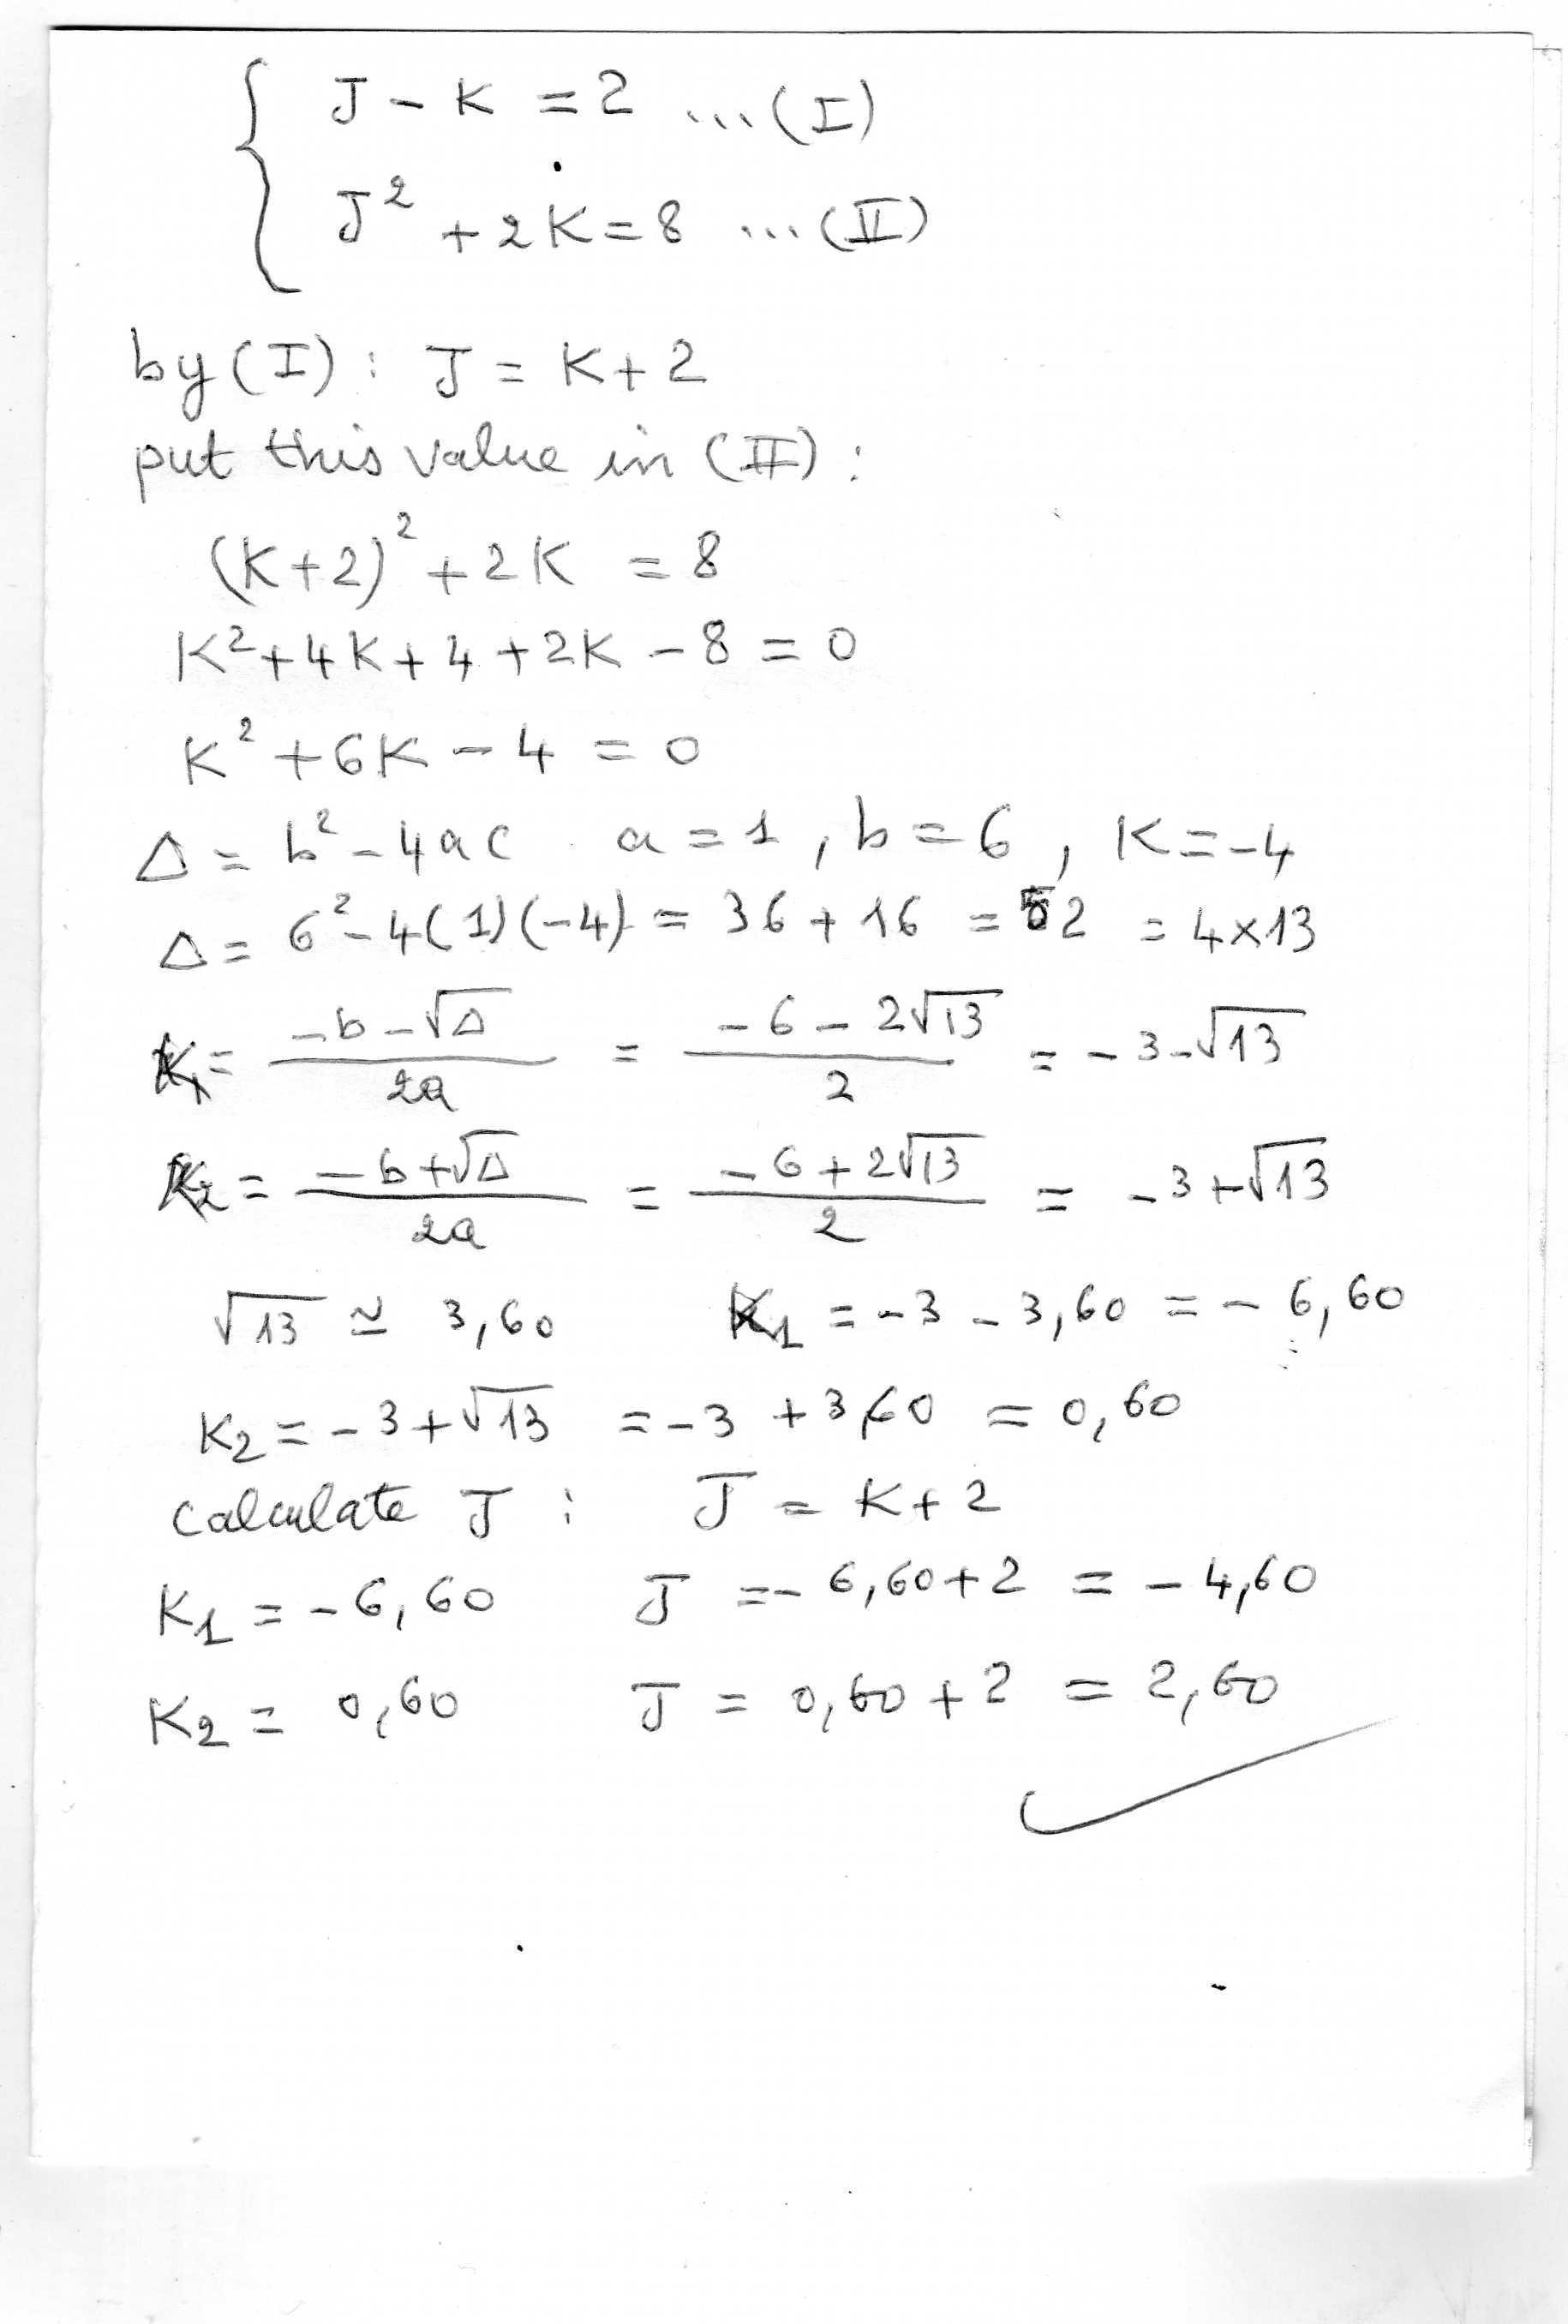 { J - K = 2 ...(I)
J² + 2K = 8 ...(II)
by (I) : J = K + 2
put this value in (II) :
(K+2)² + 2K = 8
K² + 4K + 4 + 2K - 8 = 0
K² + 6K - 4 = 0
Δ = b² - 4ac a = 1 , b = 6 , K = -4
Δ = 6² - 4(1)(-4) = 36 + 16 = 52 = 4×13
K₁ = (-b - √Δ)/2a = (-6 - 2√13)/2 = -3 - √13
K₂ = (-b + √Δ)/2a = (-6 + 2√13)/2 = -3 + √13
√13 ≅ 3,60 K₁ = -3 - 3,60 = -6,60
K₂ = -3 + √13 = -3 + 3,60 = 0,60
calculate J : J = K + 2
K₁ = -6,60 J = -6,60 + 2 = -4,60
K₂ = 0,60 J = 0,60 + 2 = 2,60